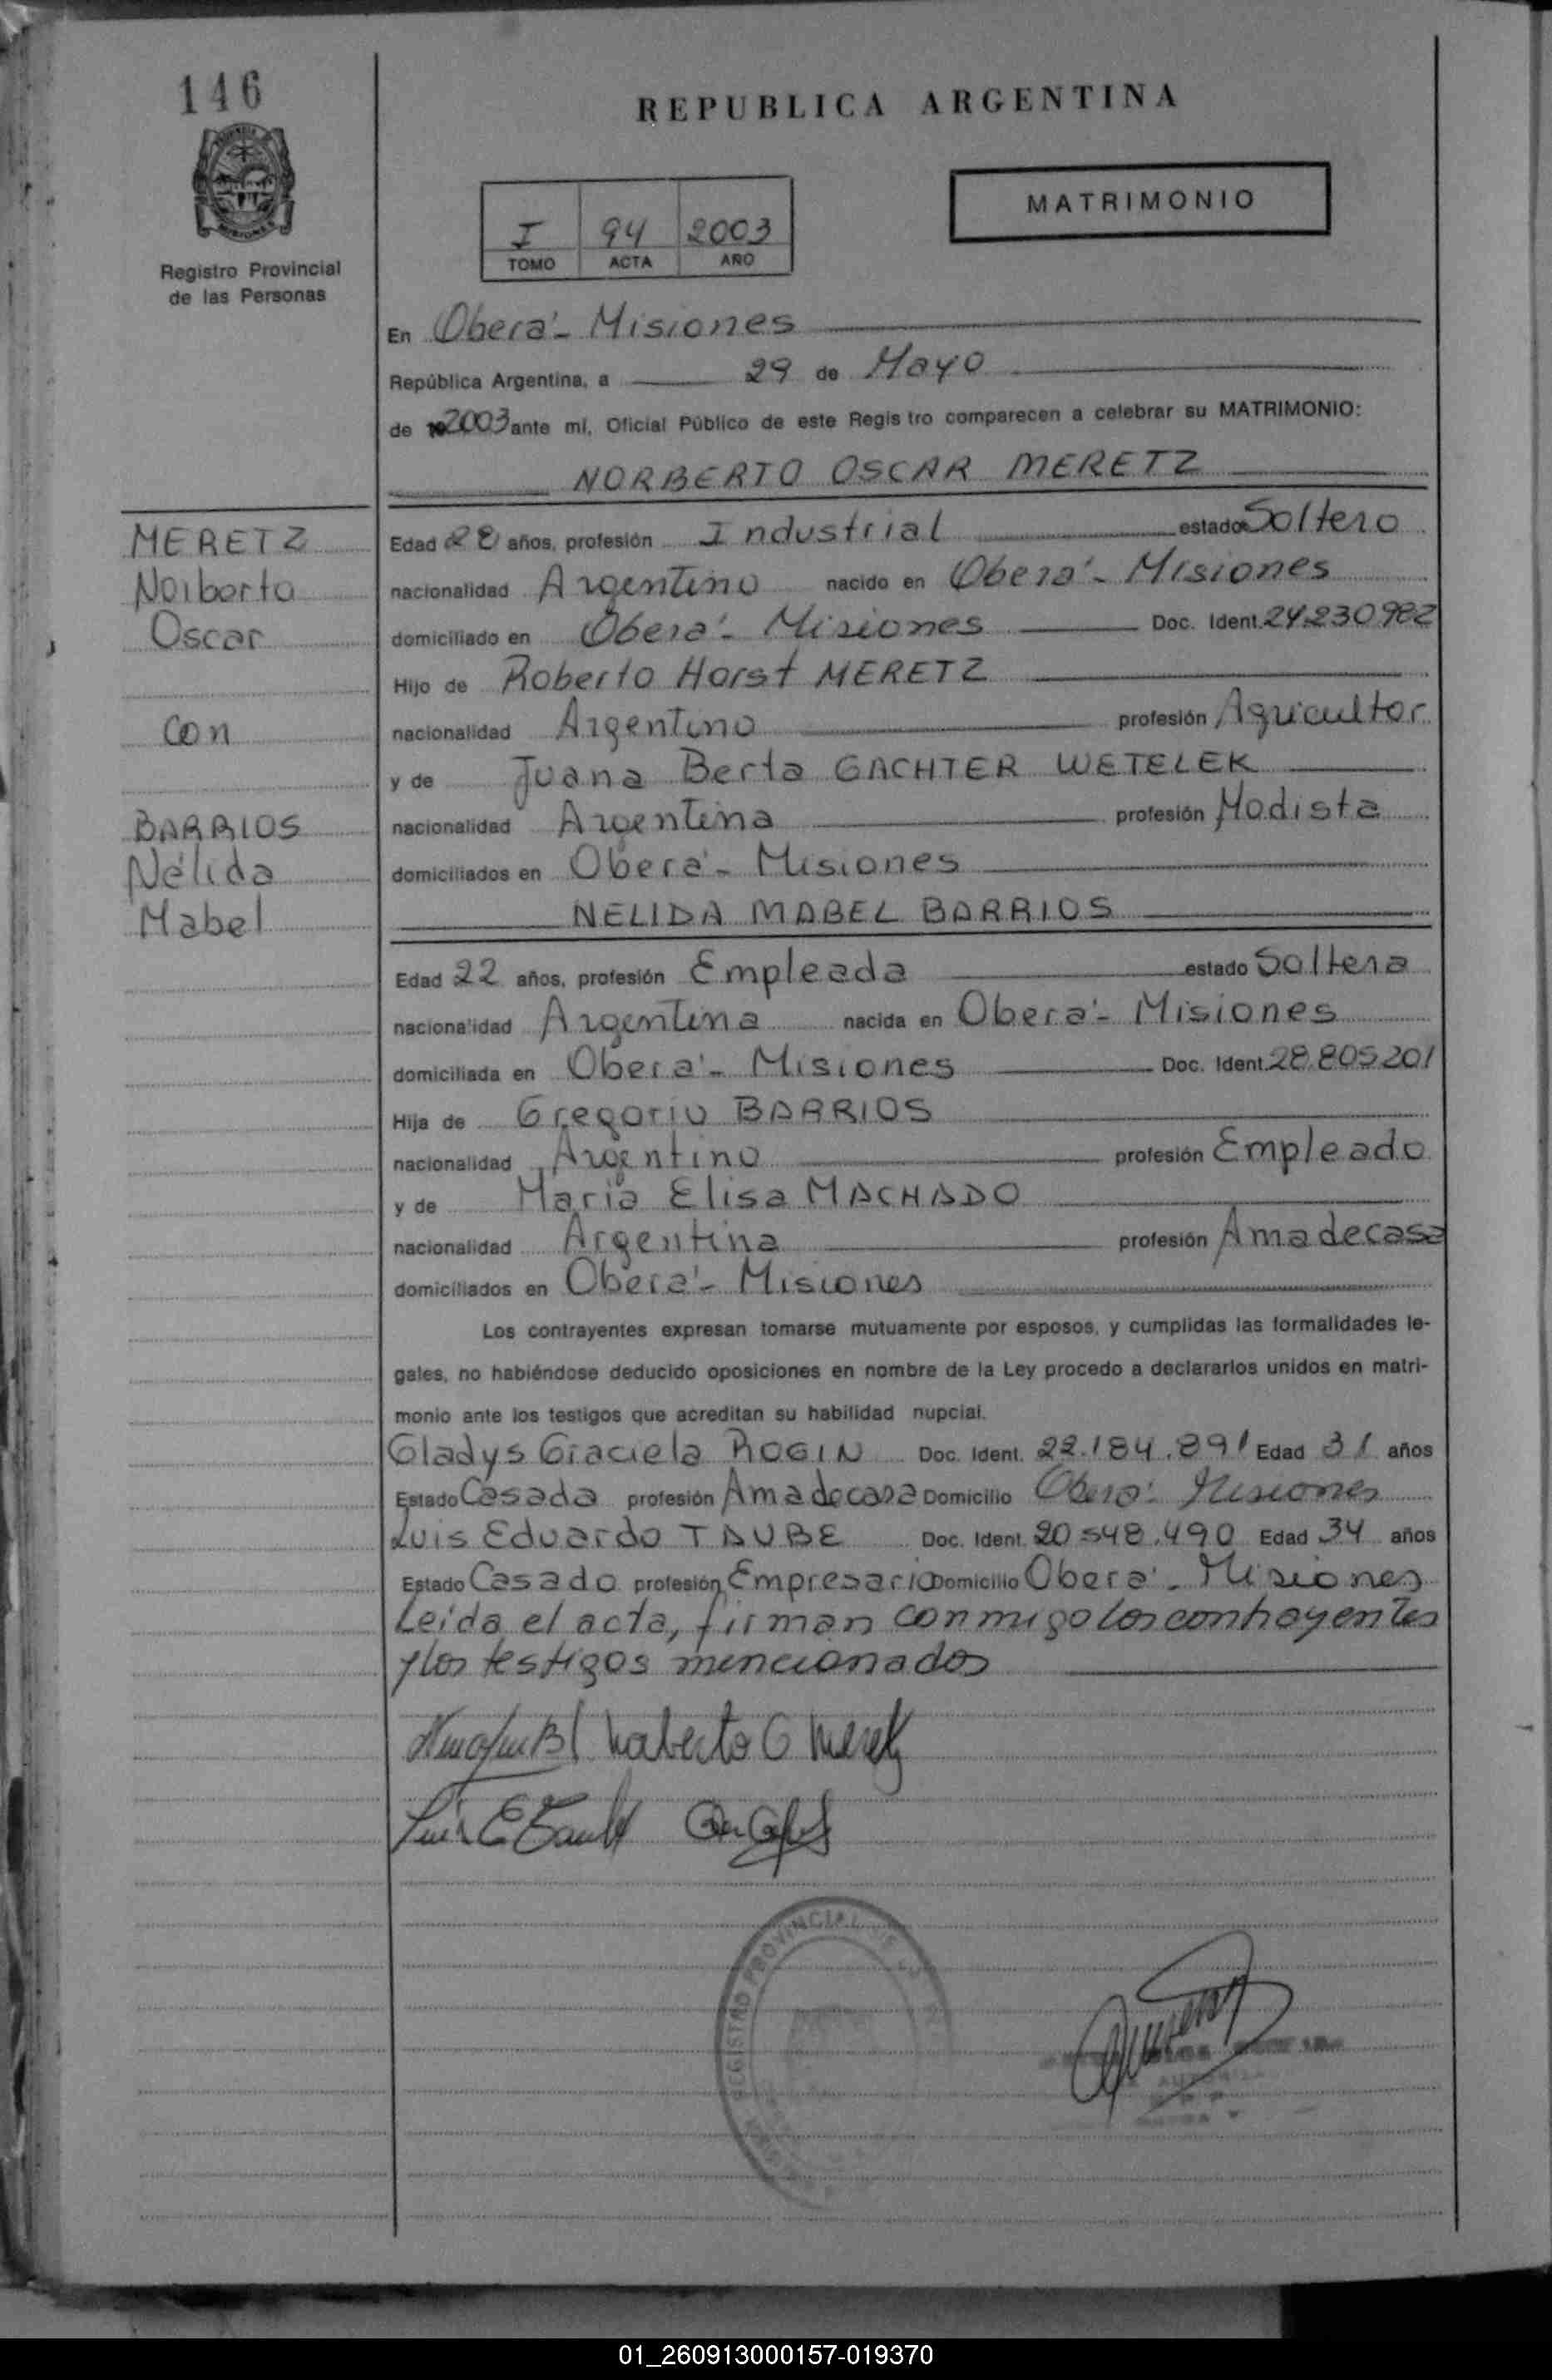 146
REPUBLICA ARGENTINA
MATRIMONIO
I 94 2003
TOMO ACTA AÑO
Registro Provincial
de las Personas
En Oberá - Misiones
República Argentina, a 29 de Mayo
de 2003 ante mí, Oficial Público de este Regis tro comparecen a celebrar su MATRIMONIO:
NORBERTO OSCAR MERETZ
MERETZ
Norberto
Oscar
con
BARRIOS
Nélida
Mabel
Edad 28 años, profesión Industrial estado Soltero
nacionalidad Argentino nacido en Oberá - Misiones
domiciliado en Oberá - Misiones Doc. Ident. 24.230.982
Hijo de Roberto Horst MERETZ
nacionalidad Argentino profesión Agricultor
y de Juana Berta GACHTER WETELEK
nacionalidad Argentina profesión Modista
domiciliados en Oberá - Misiones
NELIDA MABEL BARRIOS
Edad 22 años, profesión Empleada estado Soltera
nacionalidad Argentina nacida en Oberá - Misiones
domiciliada en Oberá - Misiones Doc. Ident. 28.805.201
Hija de Gregorio BARRIOS
nacionalidad Argentino profesión Empleado
y de Maria Elisa MACHADO
nacionalidad Argentina profesión Amadecasa
domiciliados en Oberá - Misiones
Los contrayentes expresan tomarse mutuamente por esposos, y cumplidas las formalidades le-
gales, no habiéndose deducido oposiciones en nombre de la Ley procedo a declararlos unidos en matri-
monio ante los testigos que acreditan su habilidad nupcial.
Gladys Graciela ROGIN Doc. Ident. 22.184.891 Edad 31 años
Estado Casada profesión Amadecasa Domicilio Oberá - Misiones
Luis Eduardo TAUBE Doc. Ident. 20.548.490 Edad 34 años
Estado Casado profesión Empresario Domicilio Oberá - Misiones
Leida el acta, firman conmigo los contrayentes
y los testigos mencionados
Norberto O Meretz
Luis E Taube
REGISTRO PROVINCIAL DE LAS
01_260913000157-019370